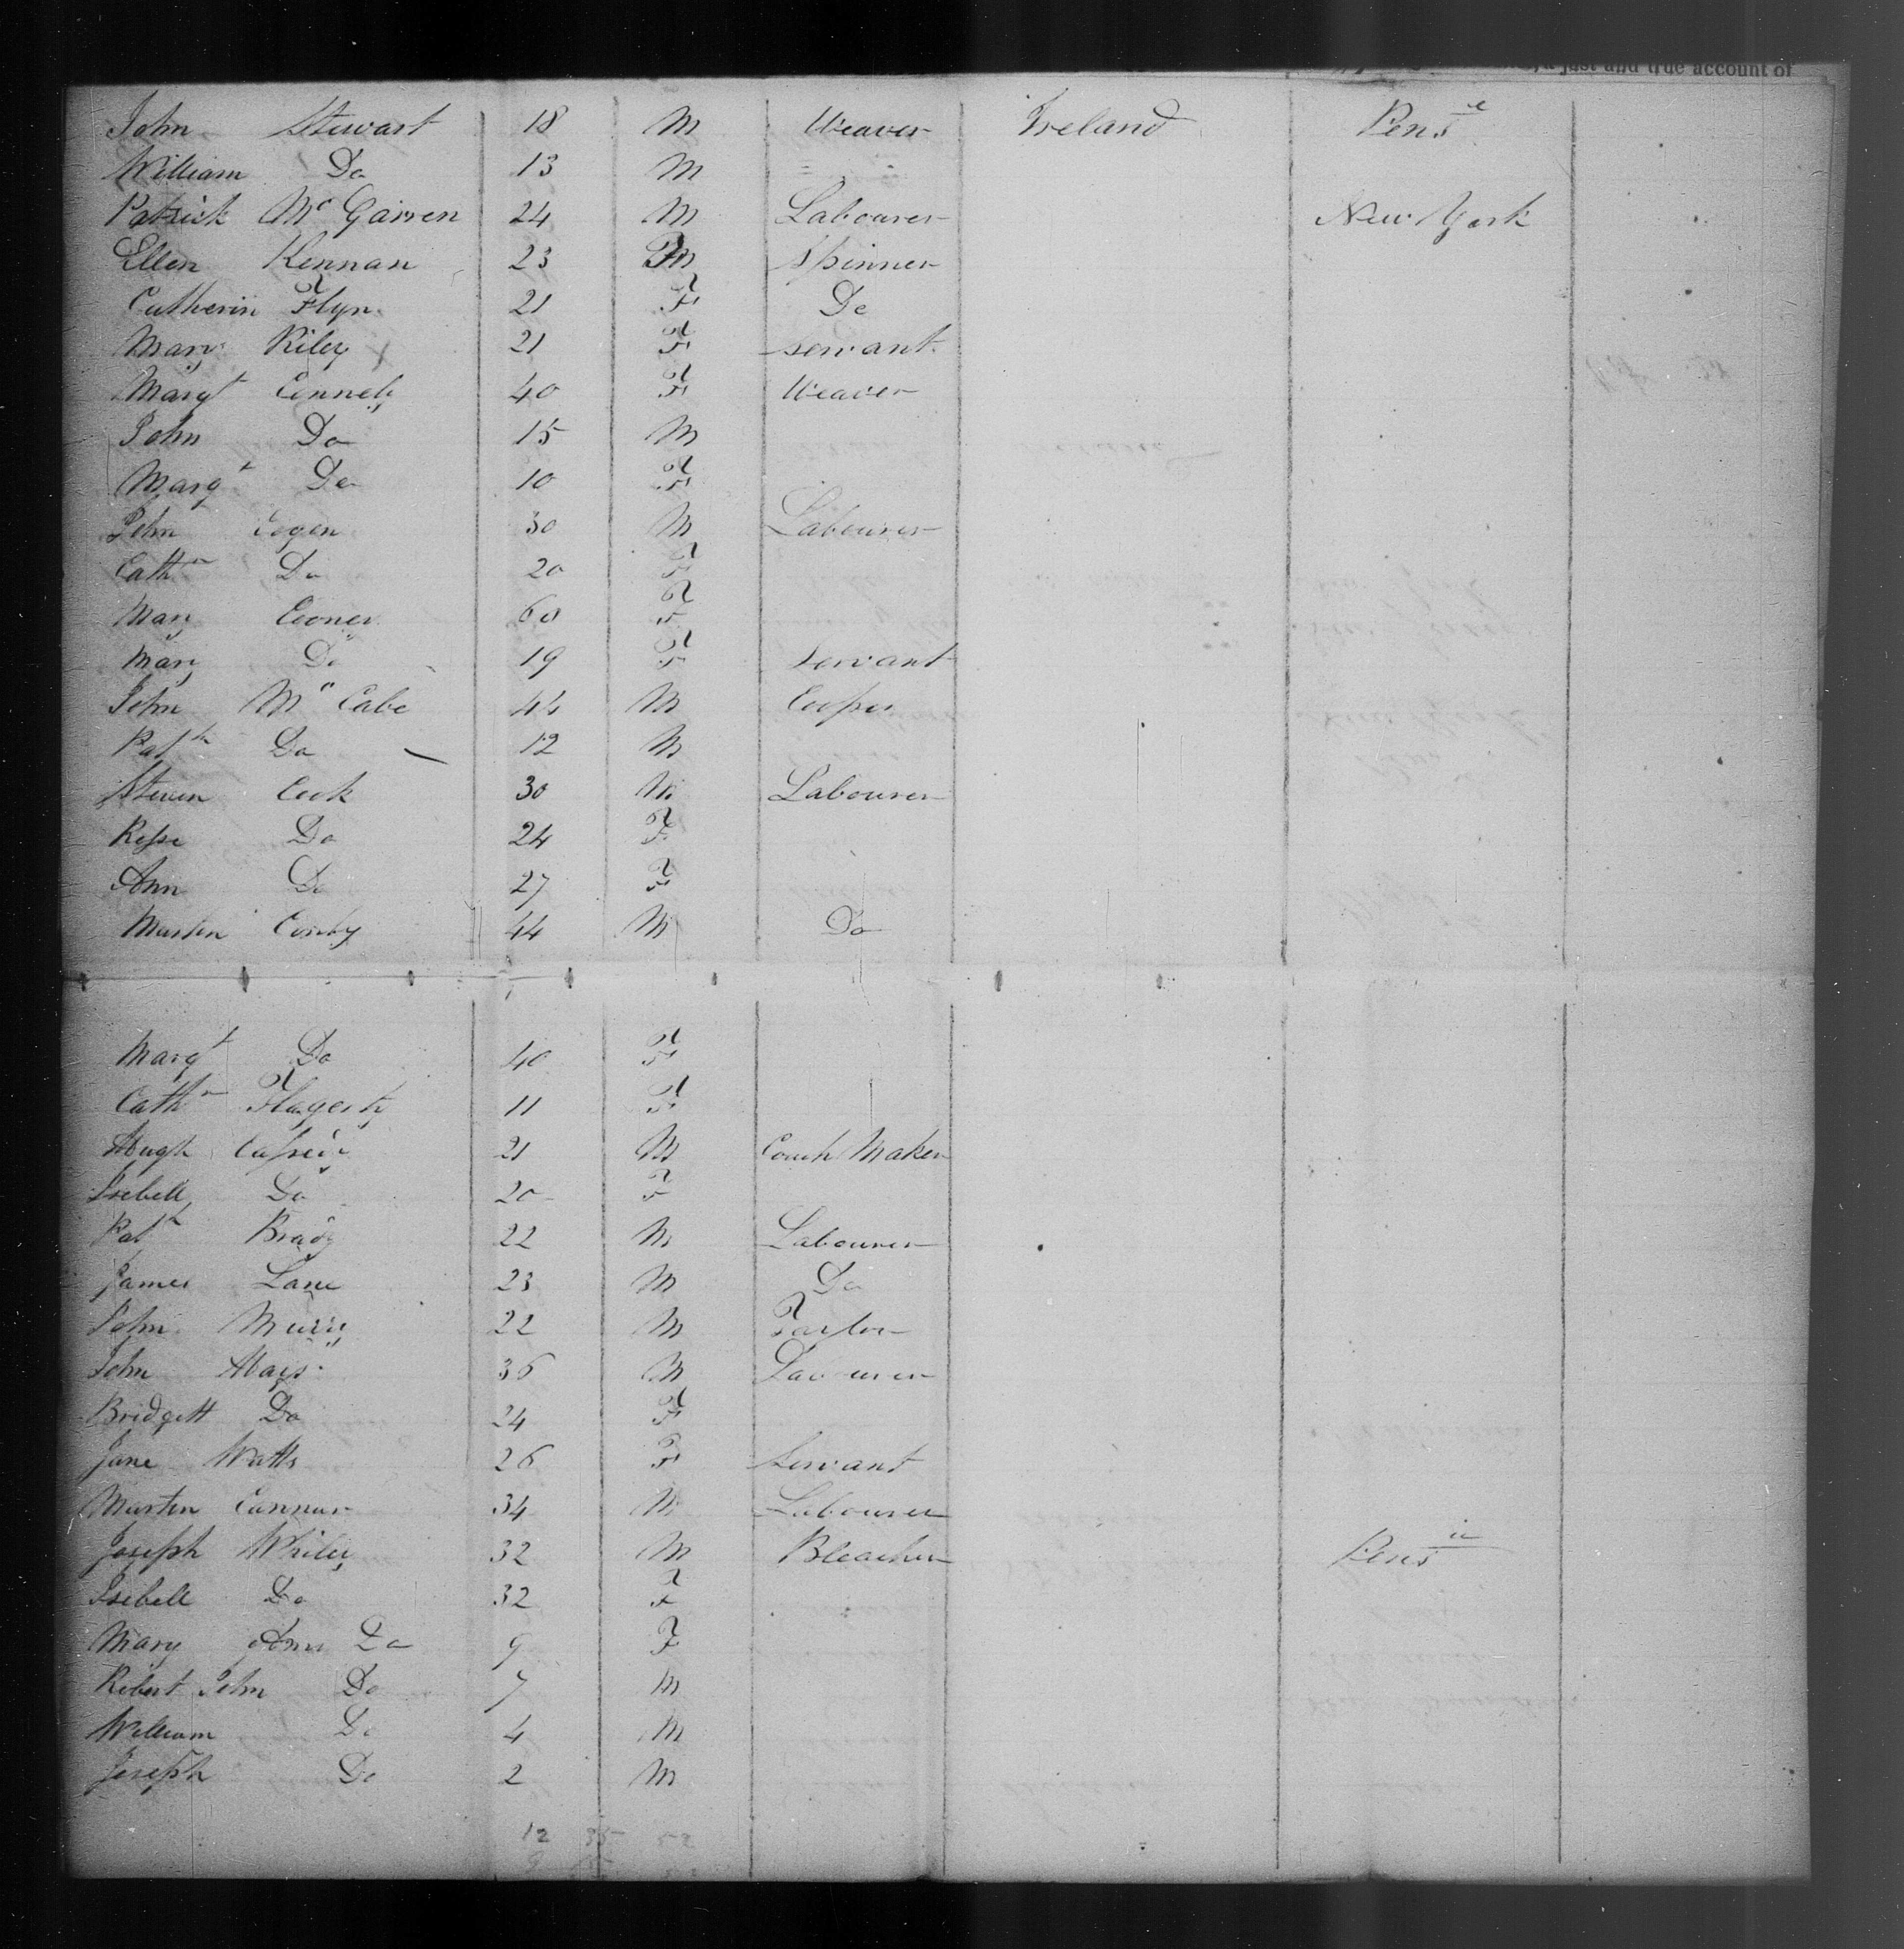 just and true account of
John Stewart 18 M Weaver Ireland Pensa
William Do 13 M
Patrick Mc Garren 24 M Labourer New York
Ellen Kennan 23 F Spinner
Catherin Flyn 21 F Do
Mary Riley 21 F Servant
Margt Connely 40 F Weaver
John Do 15 M
Margt Do 10 F
John Cogen 30 M Labourer
Cathn Do 20 F
Mary Cooney 60 F
Mary Do 19 F Servant
John Mc Cabe 44 M Cooper
Patk Do 12 M
Steven Cook 30 M Labourer
Rose Do 24 F
Ann Do 27 F
Martin Conby 44 M Do
Margt Do 40 F
Cathn Hagerty 11 F
Hugh 21 M Coach Maker
Isebell Do 20 F
Patk Brady 22 M Labourer
James Lane 23 M Do
John Murry 22 M Taylor
John Hays 36 M Labourer
Bridgett Do 24 F
Jane Watts 26 F Servant
Martin Connor 34 M Labourer
Joseph Whiley 32 M Bleacher Pensa
Isebell Do 32 F
Mary Ann Do 9 F
Robert John Do 7 M
William Do 4 M
Joseph Do 2 M
12 35 52
9